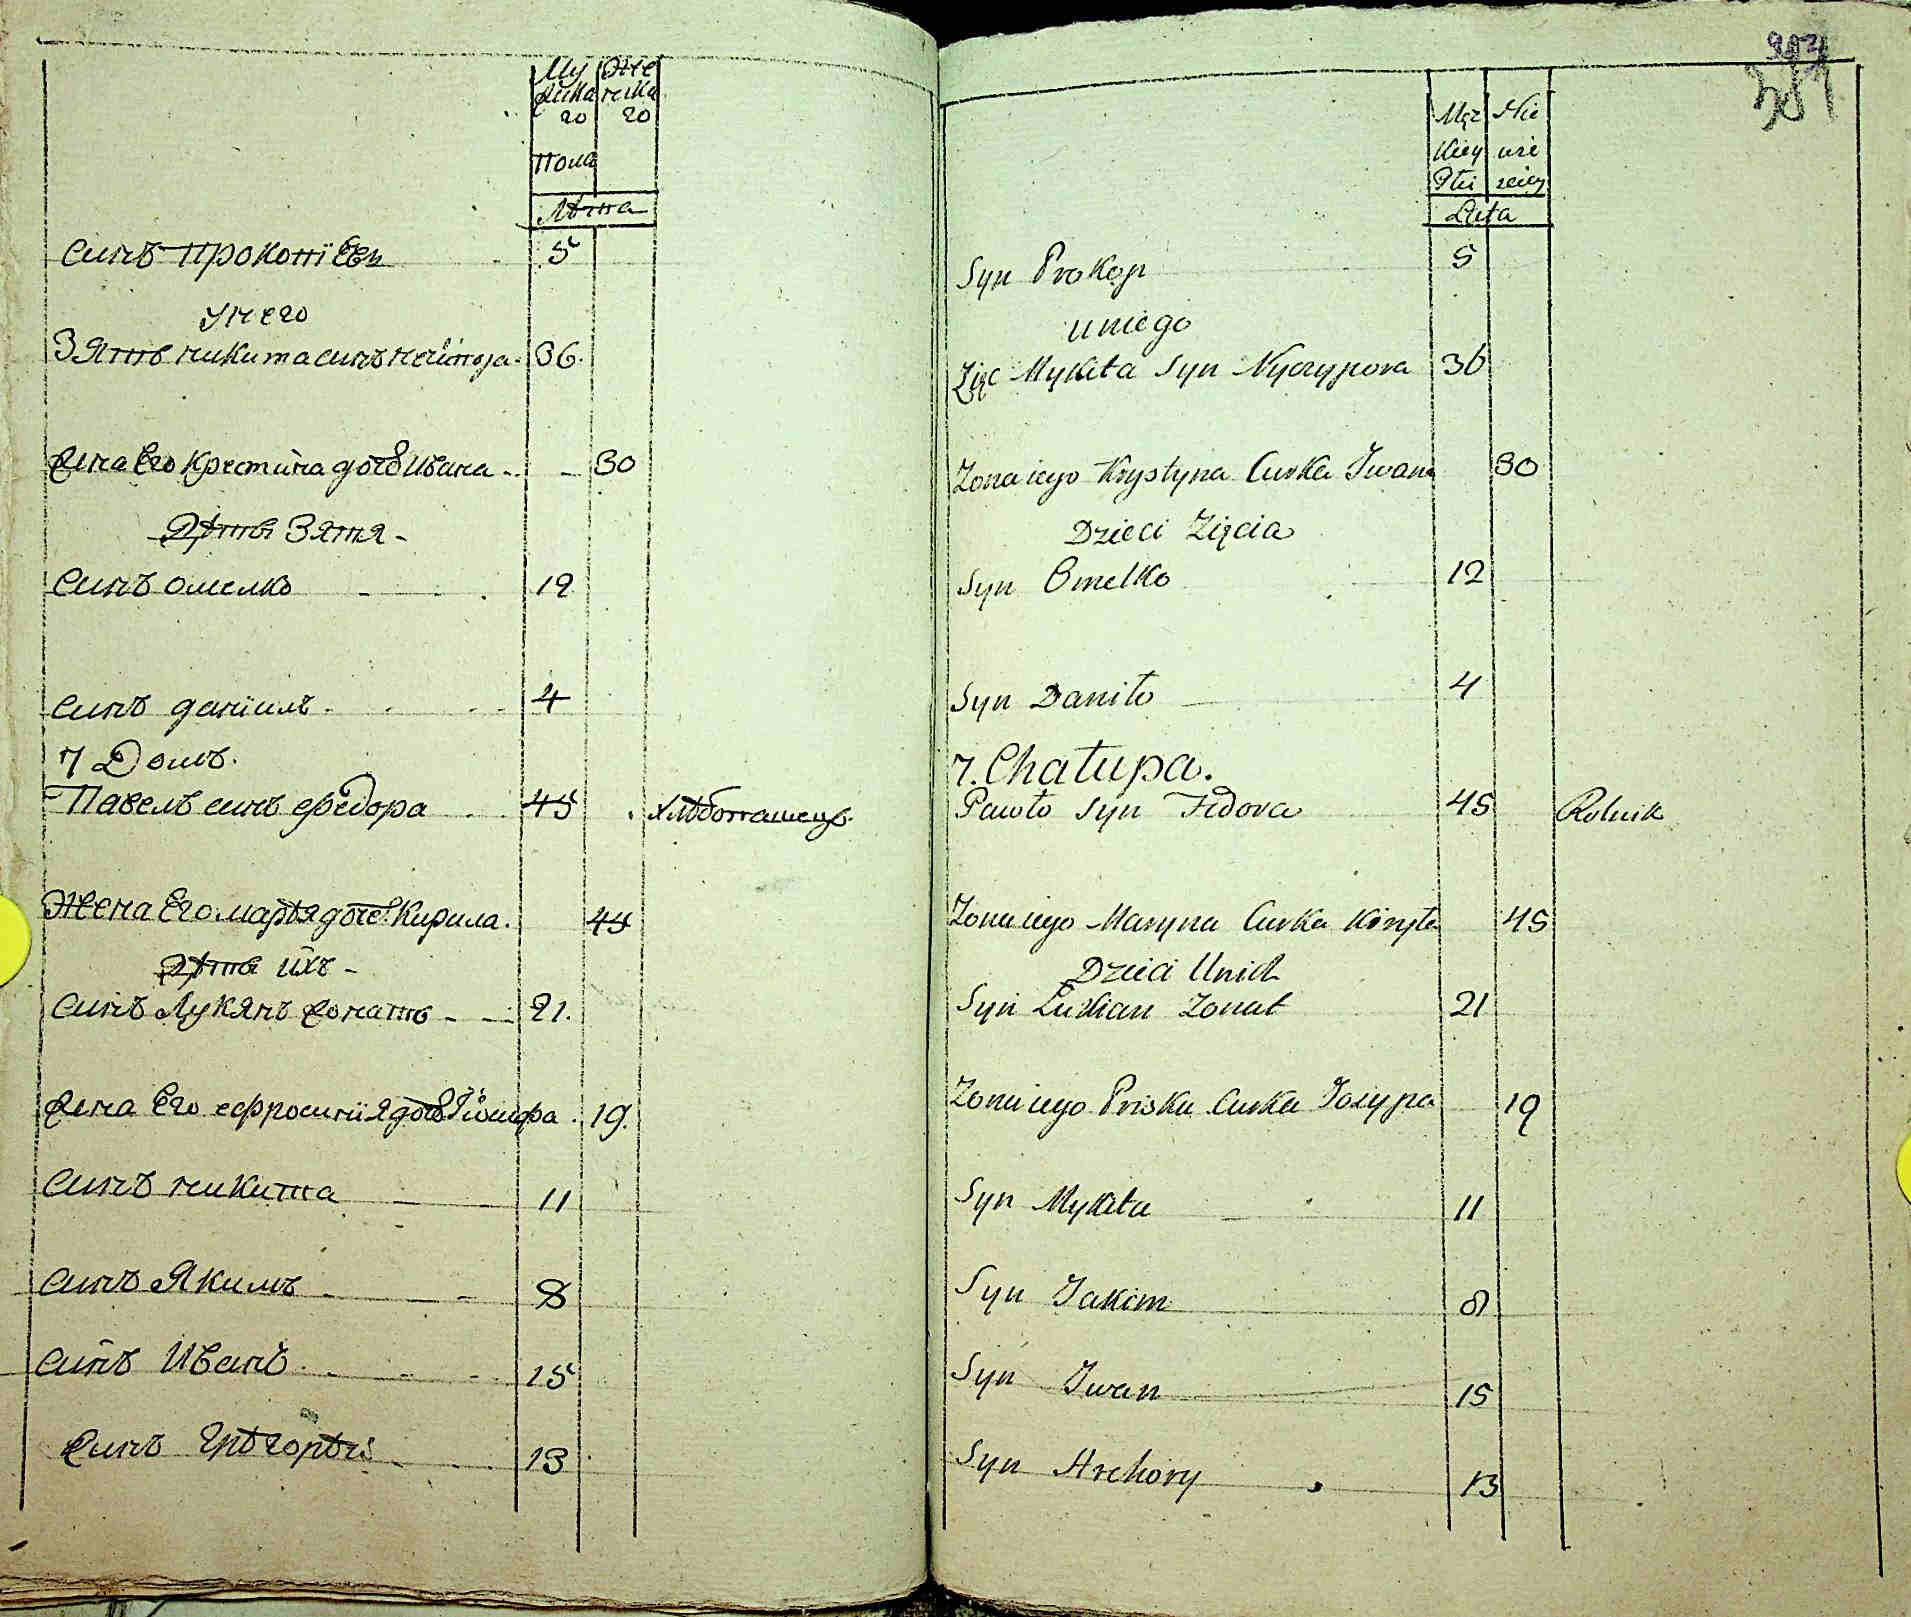 Му Же
жска нска
го го
Пола
Лѣта
синъ прокопїевъ 5
у него
Зять никита синъ нечипора 36
жена Его крестина дочь Ивана 30
Дѣти Зятя
синъ омелко 12
синъ данїилъ 4
7 Домъ.
Павелъ синъ федора 45 хлѣбопашецъ
Жена Его марья дочь Кирила. 45
Дѣти ихъ
синъ Лукянъ жонатъ 21.
жена Его ефросинїя дочь Їосифа 19.
синъ никита 11
синъ Якимъ 8
синъ Иванъ 15
синъ Грѣгорѣй 13
Męz Nie
kiey wie
Płci sciey
Lata
Syn Prokop 5
u niego
Zięc Mykita Syn Nyczypora 36
Zona iego Krystyna Curka Iwana 30
Dzieci Zięcia
Syn Omelko 12
Syn Daniło 4
7. Chałupa.
Pawło Syn Fedora 45 Rolnik
Zona iego Maryna Curka Kiryła 45
Dzieci Unich
Syn Łukian Zonat 21
Zona iego Priska Curka Iozypa 19
Syn Mykita 11
Syn Iakim 8
Syn Iwan 15
Syn Hrehory 13